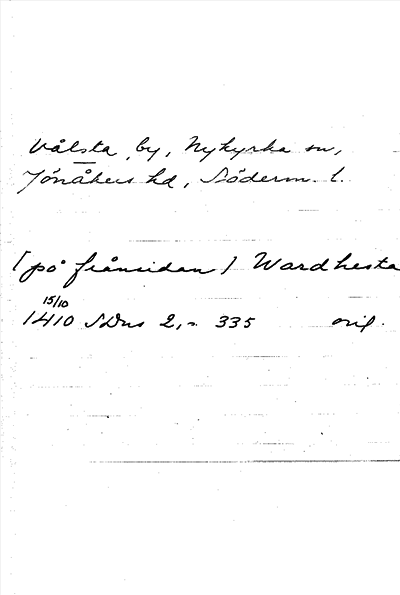 Vålsta by, Nykyrka sn,
Jönåkers hd, Söderm. l.
[på frånsidan] Wardhesta
15/10
1410 SDns 2, s. 335 orig.